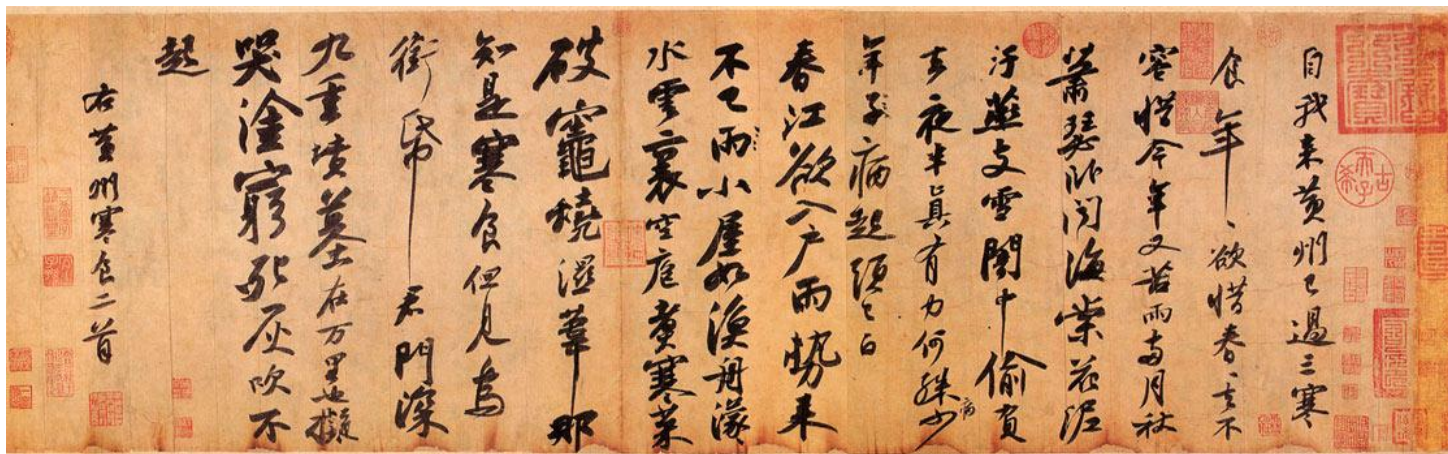 自我来黄州已過三寒
食年〻欲惜春〻去不
容惜今年又苦雨两月秋
蕭瑟卧聞海棠花泥
汙燕支雪闇中偷負
去夜半真有力何殊少
病
年子病起須已白
春江欲入户雨勢来
不已雨小屋如漁舟濛
水雲裏空庖煮寒菜
破竈燒濕葦那
知是寒食但見烏
銜帋君門深
九重墳墓在万里也擬
哭塗窮死灰吹不
起
右黄州寒食二首